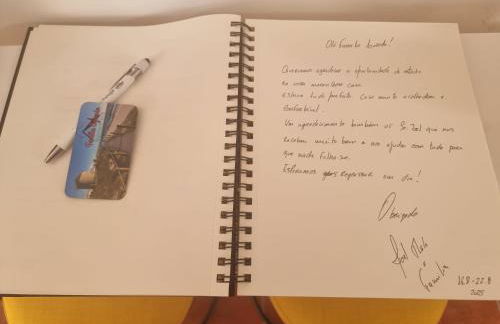 Olá Família linda!
Queremos agradecer a oportunidade de estada
na vossa maravilhosa casa
estava tudo perfeito. Casa muito acolhedora e
confortável.
Um agradecimento também ao Sr. que nos
recebeu muito bem e nos ajudou com tudo para
que nada faltasse.
Esperamos regressar um dia!
Obrigado
e
Família
16.8-22.8
2025